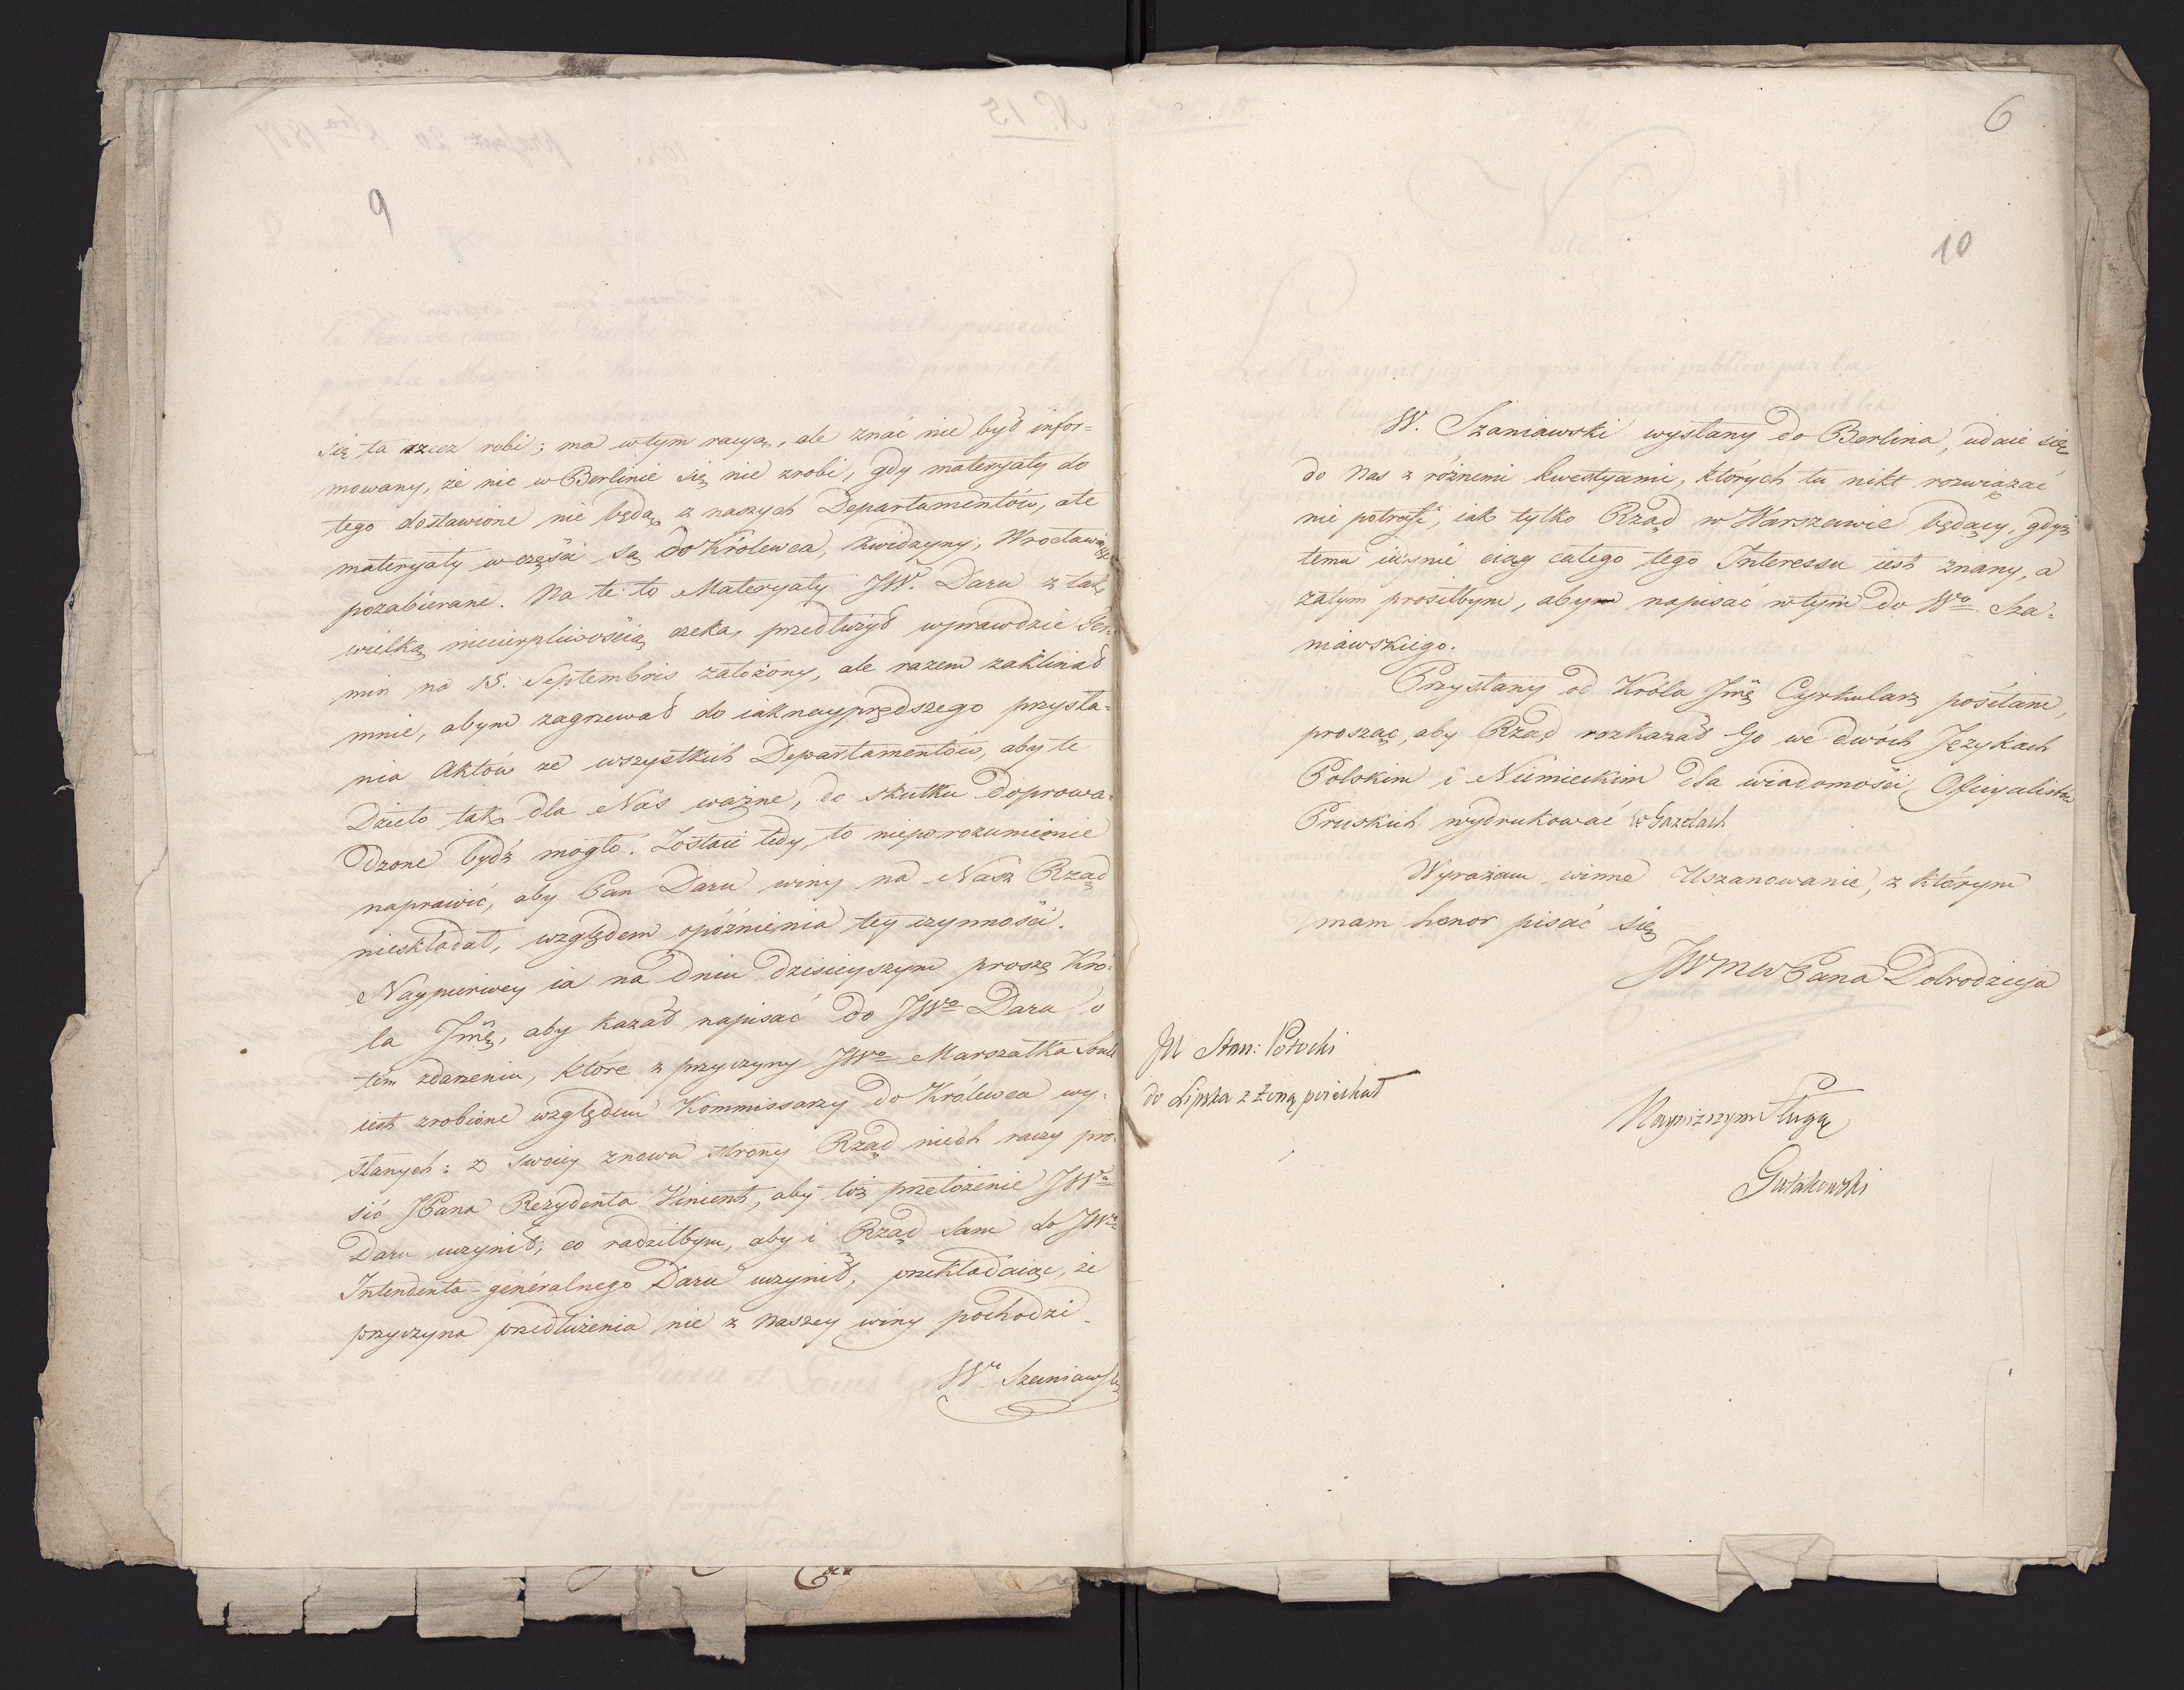 9
się ta rzecz robi; ma w tym racyą, ale znać nie był infor=
mowany, że nic w Berlinie się nie zrobi, gdy materyały do
tego dostawione nie będą z naszych Departamentów, ale
materyały w części są do Królewca, Kwidzyny, Wrocławia
pozabierane. Na te to Materyały JW. Daru z tak
wielką niecierpliwością czeka, przedłużył wprawdzie Ter=
min na 15. Septembris założony, ale razem zaklinał
mnie, abym zagrzewał do iaknayprędszego przysła=
nia Aktów ze wszystkich Departamentów, aby te
Dzieło tak dla Nas ważne, do skutku doprowa=
dzone bydź mogło. Zostaie tedy to nieporozumienie
naprawić, aby Pan Daru winy na Nasz Rząd
nieskładał, względem opóźnienia tey czynności.
Naypierwey ia na dniu dzisieyszym proszę Kró=
la Jmę, aby kazał napisać do JWo Daru o
tém zdarzeniu, które z przyczyny JWo Marszałka Soult
iest zrobione względem Kommissarzy do Królewca wy=
słanych: z swoiey znowu strony Rząd niech raczy pro=
sić JPana Rezydenta Vincent, aby toż przełożenie JWo
Daru uczynił; co radziłbym, aby i Rząd sam do JWo
Intendenta-generalnego Daru uczynił, przekładaiąc, że
przyczyna przedłużenia nie z naszey winy pochodzi.
Wy Szaniawski
6
10
W. Szaniawski wysłany do Berlina, udaie się
do Nas z różnemi kwestyami, których tu nikt rozwiązać
nie potrafi, iak tylko Rząd w Warszawie będący, gdyż
temu iuż ciąg całego tego Interessu iest znany, a
zatym prosiłbym, abym napisać w tym do Wo Sza=
niawskiego.
Przysłany od Króla Jmę Cyrkularz posełam,
prosząc, aby Rząd rozkazał Go we dwóch Językach
Polskim i Niemieckim dla wiadomości Oficyalistów
Pruskich wydrukować w Gazetach
Wyrażam winne Uszanowanie, z którym
mam honor pisać się
JWMWPana Dobrodzieja
JW Stan: Potocki
do Lipska z żoną poiechał
Nayniższym Sługą
Gutakowski